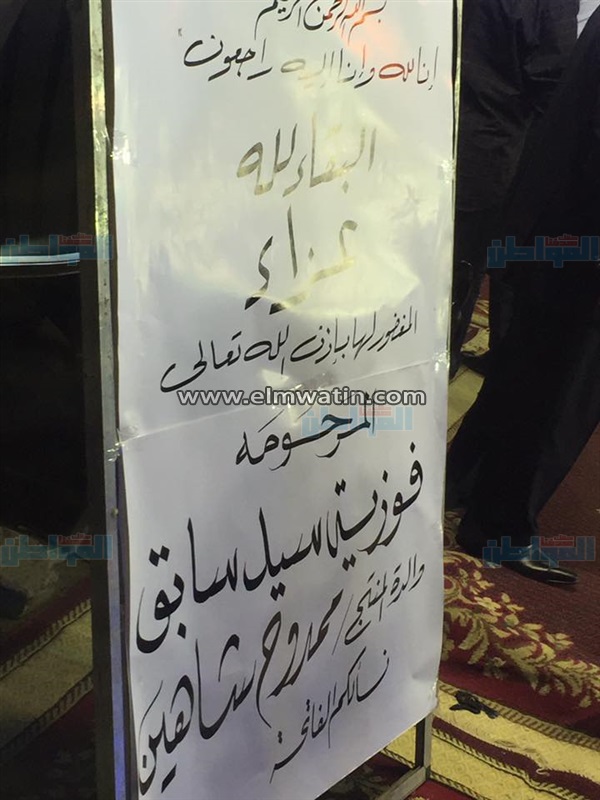 بسم الله الرحمن الرحيم
إنا لله وإنا إليه راجعون
البقاء لله
عزاء
المغفور لها بإذن الله تعالى
www.elmwatin.com
المرحومه
فوزية سيد سابق
والدة المنتج / ممدوح شاهين
نسألكم الفاتحة
المواطن
المواطن
المواطن
المواطن
المواطن